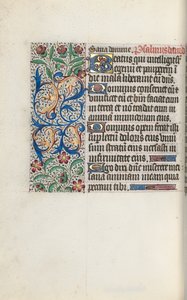 Sana domine. Psalmus david
Beatus qui intelligit
egenum et pauperem in
die mala liberabit eum dñs.
Dominus conseruet eum et
eum et beatum faciat eum
in terra et non tradat eum in
animam inimicorum eius.
Dominus opem ferat illi
super lectum doloris eius uni
sum stratum eius uersasti in
infirmitate eius.
Ego dixi dñe miserere mei
sana animam meam quia
peccaui tibi.